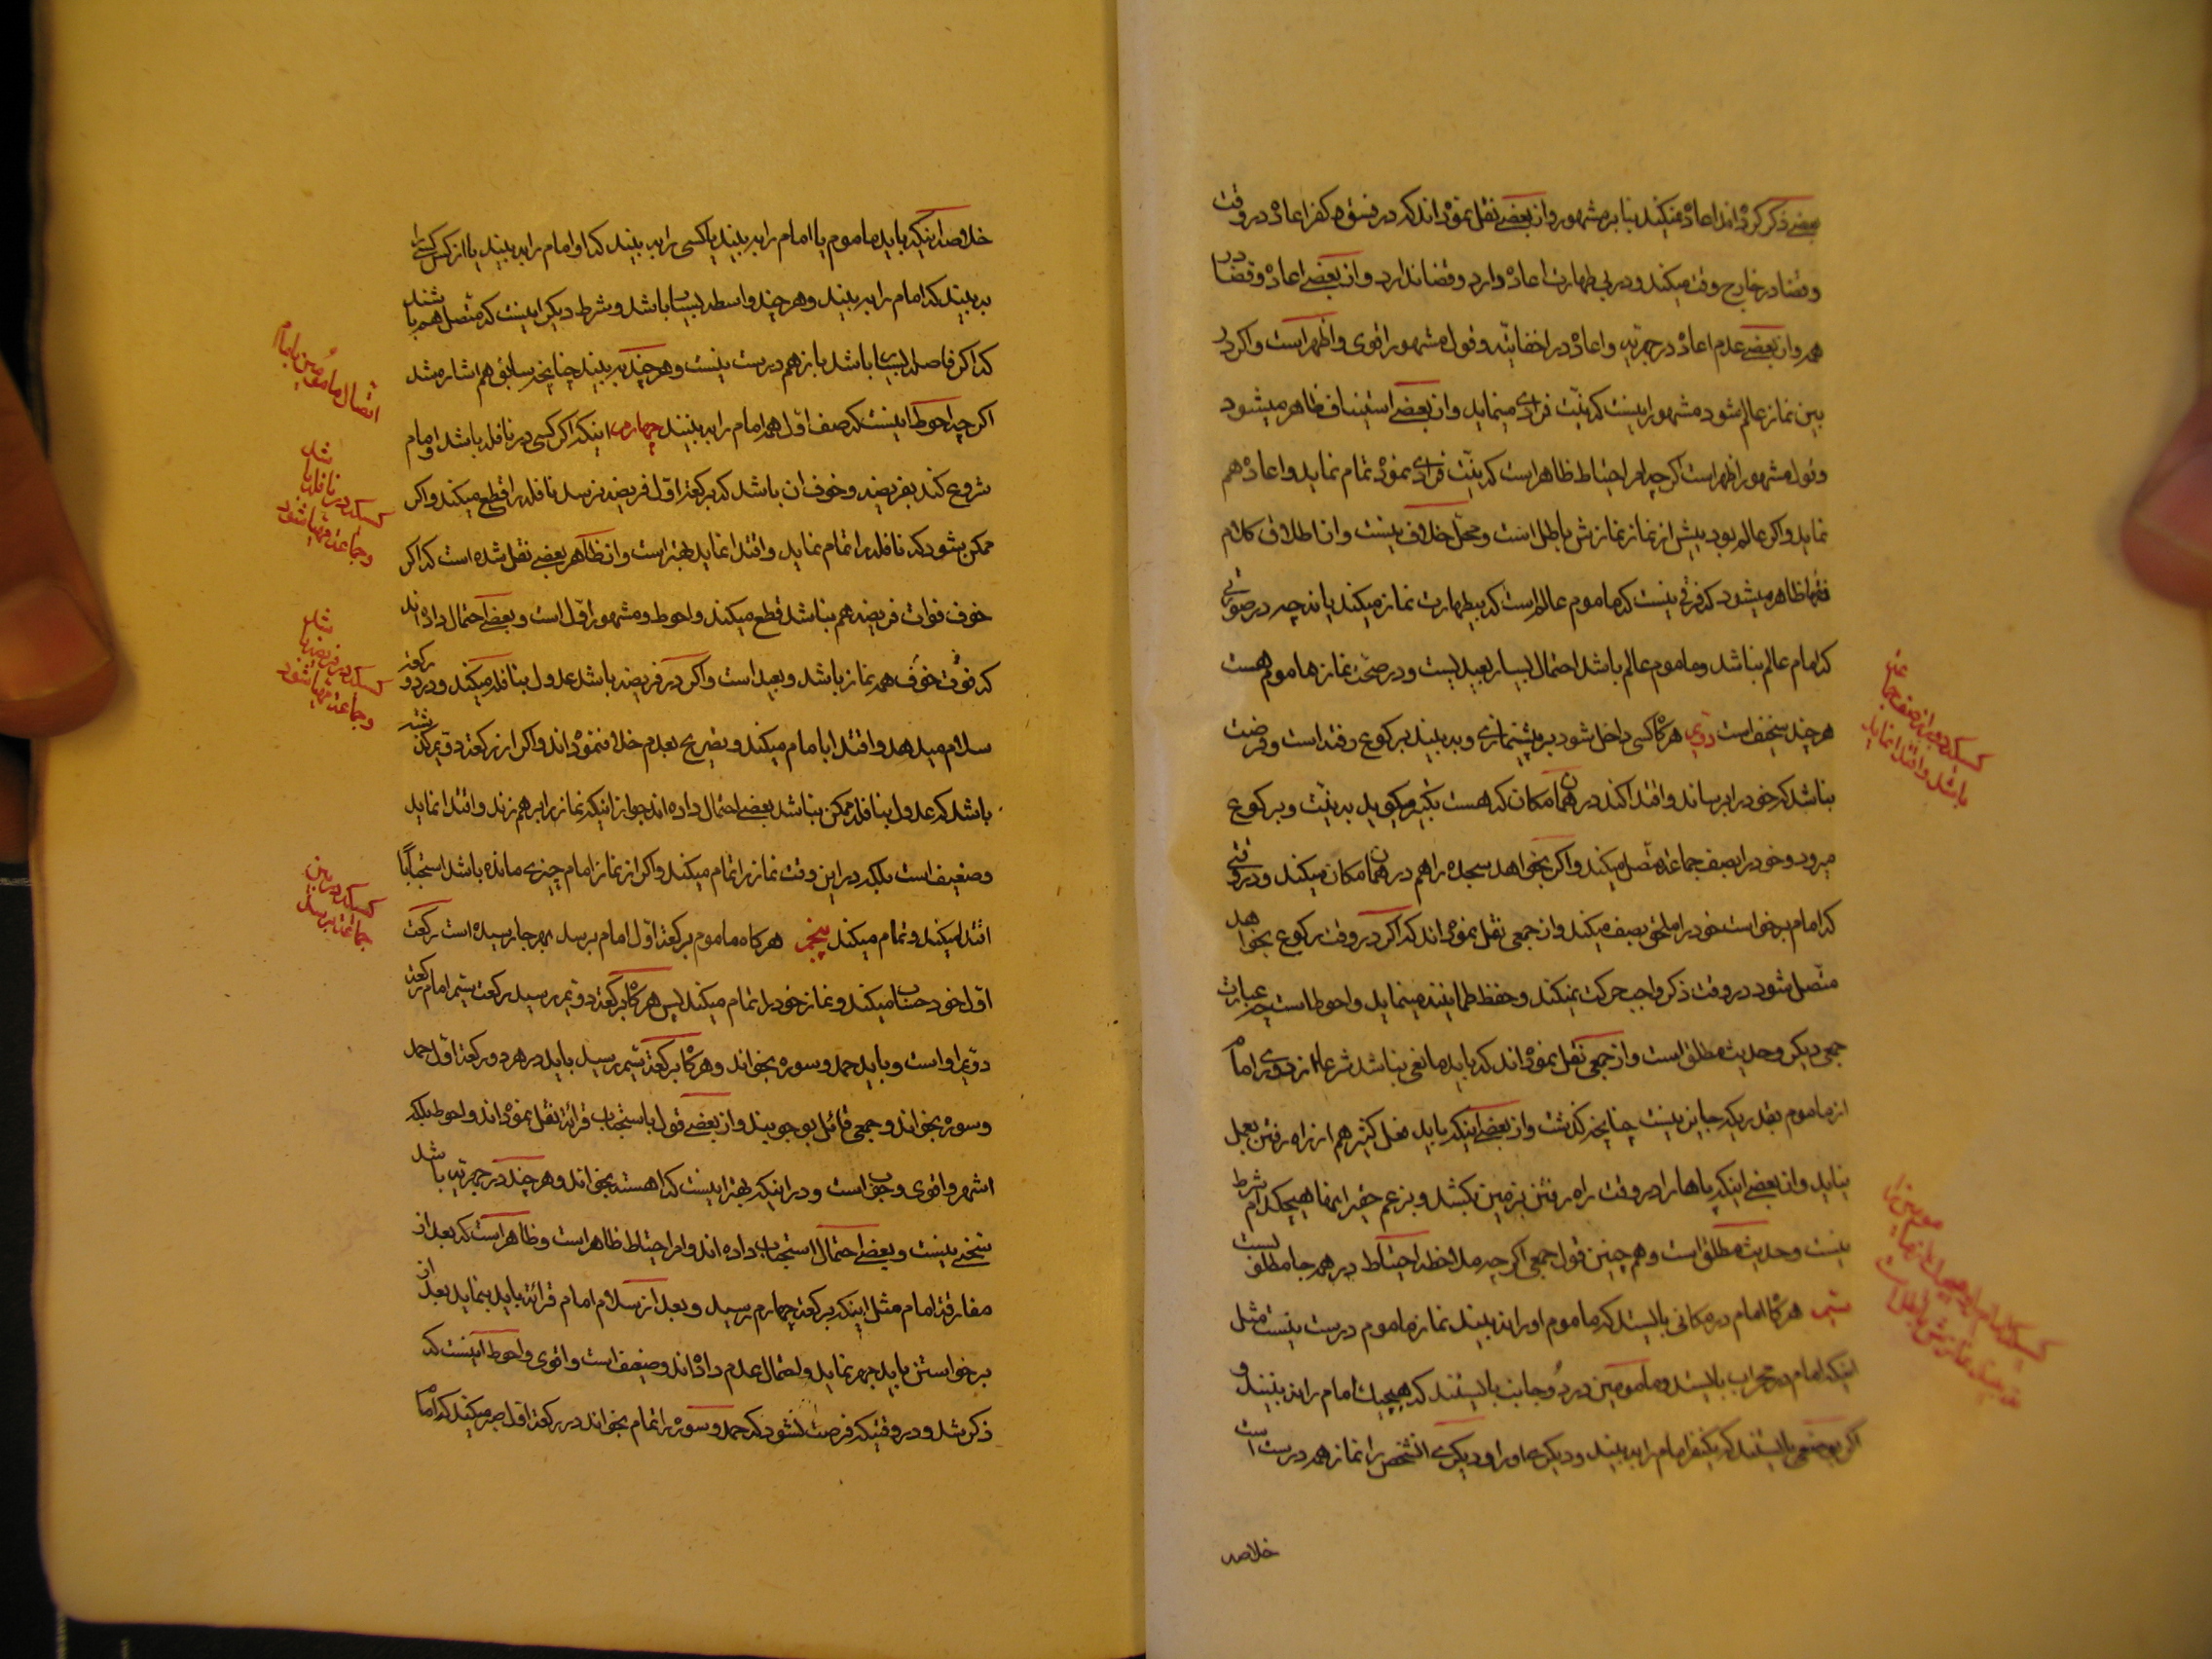 بعضی ذکر کرده‌اند اعاده نمیکند بنا بر مشهور و از بعضی نقل نموده‌اند که در فسق و کفر اعاده در وقت
و قضا در خارج وقت میکند و در بی طهارت اعاده دارد و قضا ندارد و از بعضی اعاده و قضا در
همه و از بعضی عدم اعاده در جهریه و اعاده در اخفاتیه و قول مشهور اقوی و اظهر است و اکر در
بین نماز عالم شود مشهور اینست که نیّت فرادی مینماید و از بعضی استیناف ظاهر میشود
و قول مشهور اظهر است اکر چه امر احتیاط ظاهر است که نیّت فرادی نموده تمام نماید و اعاده هم
نماید و اکر عالم بود پیش از نماز نمازش باطل است و محل خلاف نیست و از اطلاق کلام
فقها ظاهر میشود که فرقی نیست که ماموم عالم است که بیطهارت نماز میکند یا نه چه در صورتی
که امام عالم نباشد و ماموم عالم باشد احتمال بسیار بعید یست و در صحّت نماز ماموم هست
هر چند سخیف است دویم هرکاه کسی داخل شود بر پیشنمازی و به بیند برکوع رفته است و فرصت
نباشد که خود را برساند و اقتدا کند در همان مکان که هست تکبیر میکوید به نیّت و برکوع
میرود و خود را بصف جماعة متّصل میکند و اکر بخواهد سجده را هم در همان مکان میکند و در وقتی
که امام برخواست خود را ملحق بصف میکند و از جمعی نقل نموده‌اند که اکر در وقت رکوع بخواهد
متّصل شود در وقت ذکر واجب حرکت نمیکند و حفظ طمانینه مینماید و احوط است چه عبارت
جمعی دیکر و حدیث مطلق است و از جمعی نقل نموده‌اند که باید مانعی نباشد شرعا از دوری امام
از ماموم بقدریکه جایز نیست چنانچه کذشت و از بعضی اینکه باید فعل کثیر هم از راه رفتن بعمل
نیاید و از بعضی اینکه پاها را در وقت راه رفتن بزمین بکشد و بزعم حقیر اینها هیچکدام شرط
نیست و حدیث مطلق است و هم چنین قول جمعی اکر چه ملاحظه احتیاط در همه جا مطلقیست
سیم هرکاه امام در مکانی بایستد که ماموم او را نه بیند نماز ماموم درست نیست مثل
اینکه امام در محراب بایستد و مامومین در دو جانب بایستند که هیچیک امام را نه بینند و
اکر بوضعی بایستند که یکنفر امام را به بیند و دیکری او را و دیکری انشخص را نماز همه درست است
خلاصه
کسیکه دور از صف جماعة
باشد و اقتدا نماید
خلاصه اینکه باید ماموم یا امام را به بیند یا کسی را به بیند که او امام را به بیند یا از کس کسی را
به بیند که امام را به بیند و هر چند واسطه بسیار باشد و شرط دیکر اینست که متّصل هم باشند
که اکر فاصله بسیار باشد باز هم درست نیست و هر چند به بیند چنانچه سابق هم اشاره شد
اکر چه احوط اینست که صف اوّل همه امام را به بینند چهارم اینکه اکر کسی در نافله باشد و امام
شروع کند بفریضه و خوف ان باشد که برکعة اوّل فریضه نرسد نافله را قطع میکند و اکر
ممکن بشود که نافله را تمام نماید و اقتدا نماید بهتر است و از ظاهر بعضی نقل شده است که اکر
خوف فوات فریضه هم نباشد قطع میکند و احوط و مشهور اوّل است و بعضی احتمال داده‌اند
که فوت خوف همه نماز باشد و بعید است و اکر در فریضه باشد عدول بنافله میکند و در دو رکعة
سلام میدهد و اقتدا بامام میکند و تصریح بعدم خلاف نموده‌اند و اکر از رکعة دویم کذشته
باشد که عدول بنافله ممکن نباشد بعضی احتمال داده‌اند جواز اینکه نماز را برهم زند و اقتدا نماید
و ضعیف است بلکه در این وقت نماز را تمام میکند و اکر از نماز امام چیزی مانده باشد استحبابا
اقتدا میکند و تمام میکند پنجم هرکاه ماموم برکعة اوّل امام نرسد بهر جا رسیده است رکعت
اوّل خود حساب میکند و نماز خود را تمام میکند پس هرکاه برکعة دویم رسید رکعت سیم امام رکعة
دویم او است و باید حمد و سوره بخواند و هرکاه برکعة سیم رسید باید در هر دو رکعة اوّل حمد
و سوره بخواند و جمعی قائل بوجوبند و از بعضی قول باستحباب قرائة نقل نموده‌اند و احوط بلکه
اشهر و اقوی وجوب است و در اینکه بهتر اینست که اهسته بخواند و هر چند در جهریه باشد
سخنی نیست و بعضی احتمال استحباب داده‌اند و امر احتیاط ظاهر است و ظاهر است که بعد از
مفارقة امام مثل اینکه برکعة چهارم رسید و بعد از سلام امام قرائة باید بنماید بعد از
برخواستن باید جهر نماید و احتمال عدم داده‌اند و ضعیف است و اقوی و احوط اینست که
ذکر شد و در وقتیکه فرصت نشود که حمد و سوره را تمام بخواند در رکعة اوّل صبر میکند که امام
اتّصال مامومین با امام
کسیکه در نافله باشد
و جماعة مهیا شود
کسیکه در فریضه باشد
و جماعة مهیا شود
کسیکه در بین
جماعة برسد